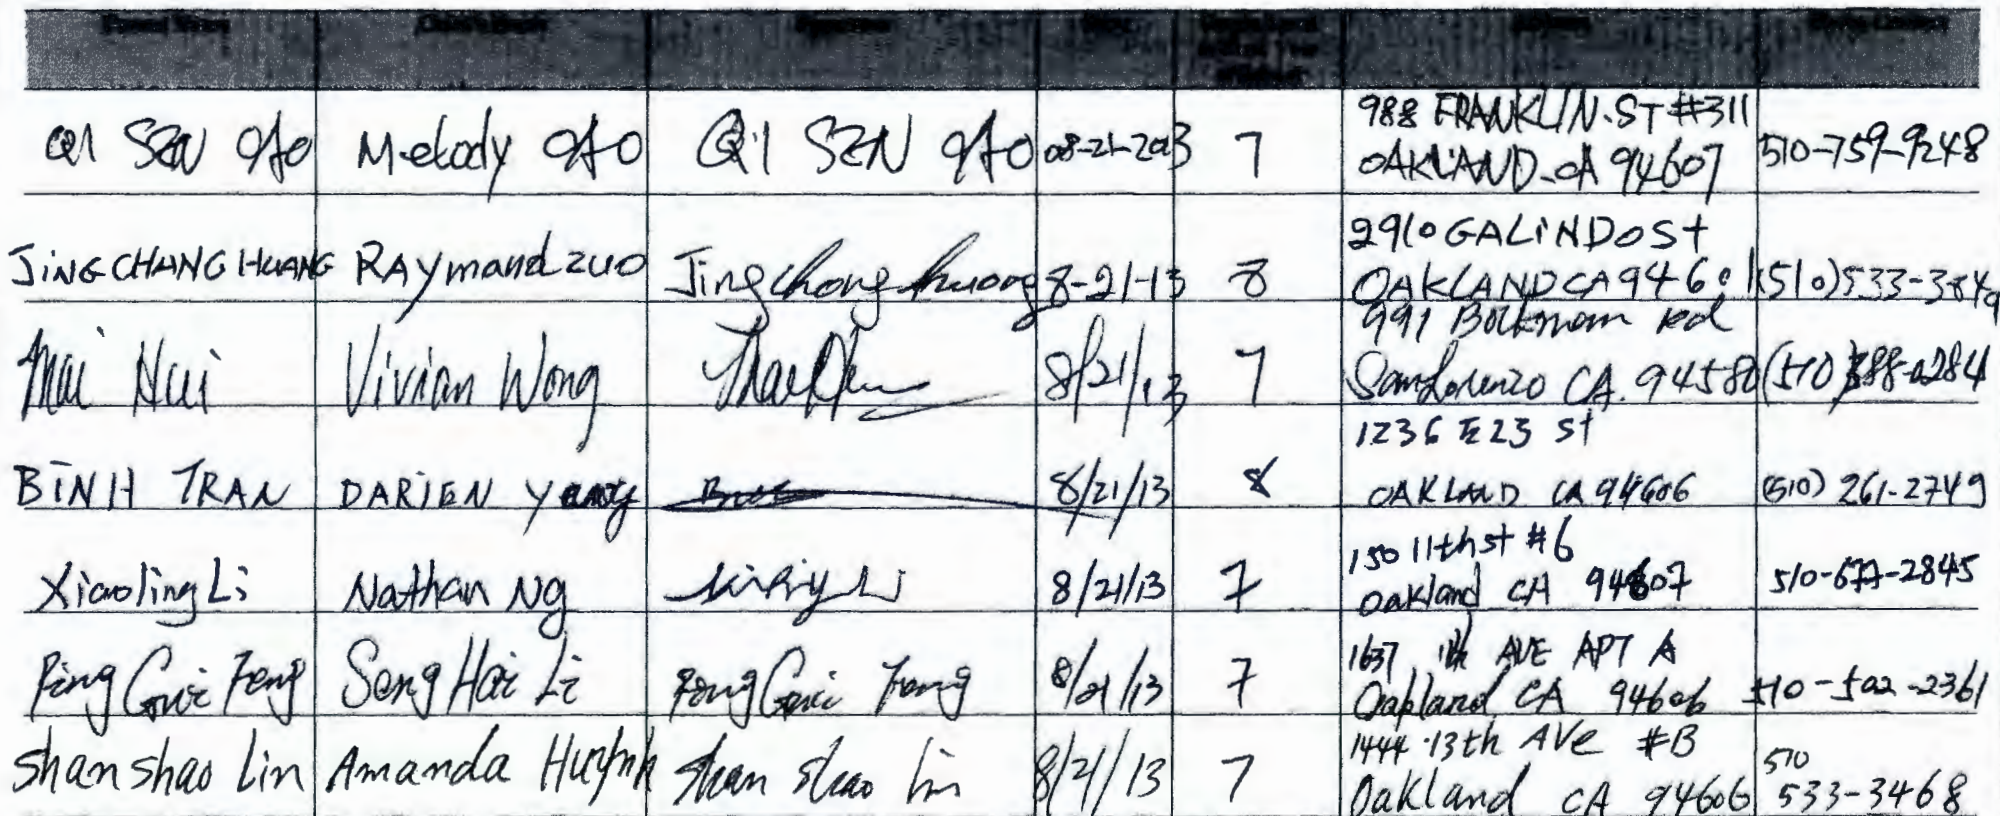 QI SEN GAO Melody GAO QI SEN GAO 08-21-2013 7 988 FRANKLIN. ST #311 OAKLAND. CA 94607 510-759-9248
JING CHANG HUANG RAymand zuo Jing chang huang 8-21-13 8 2910 GALINDO St OAKLAND CA 94601 (510) 533-3849
Mai Hui Vivian Wong 8/21/13 7 991 Bockman rd San Lorenzo CA. 94580 (510) 388-0284
BINH TRAN DARIEN Yang 8/21/13 8 1236 E 23 St OAKLAND CA 94606 (510) 261-2749
Xiaoling Li Nathan Ng 8/21/13 7 150 11th st #6 Oakland CA 94607 510-677-2845
Ping Gui Feng Seng Hai Li Ping Gui Feng 8/21/13 7 1637 AVE APT A Oakland CA 94606 510-502-2361
Shan shao Lin Amanda Huynh Shan Shao Lin 8/21/13 7 1444 13th AVe #B Oakland CA 94606 510 533-3468